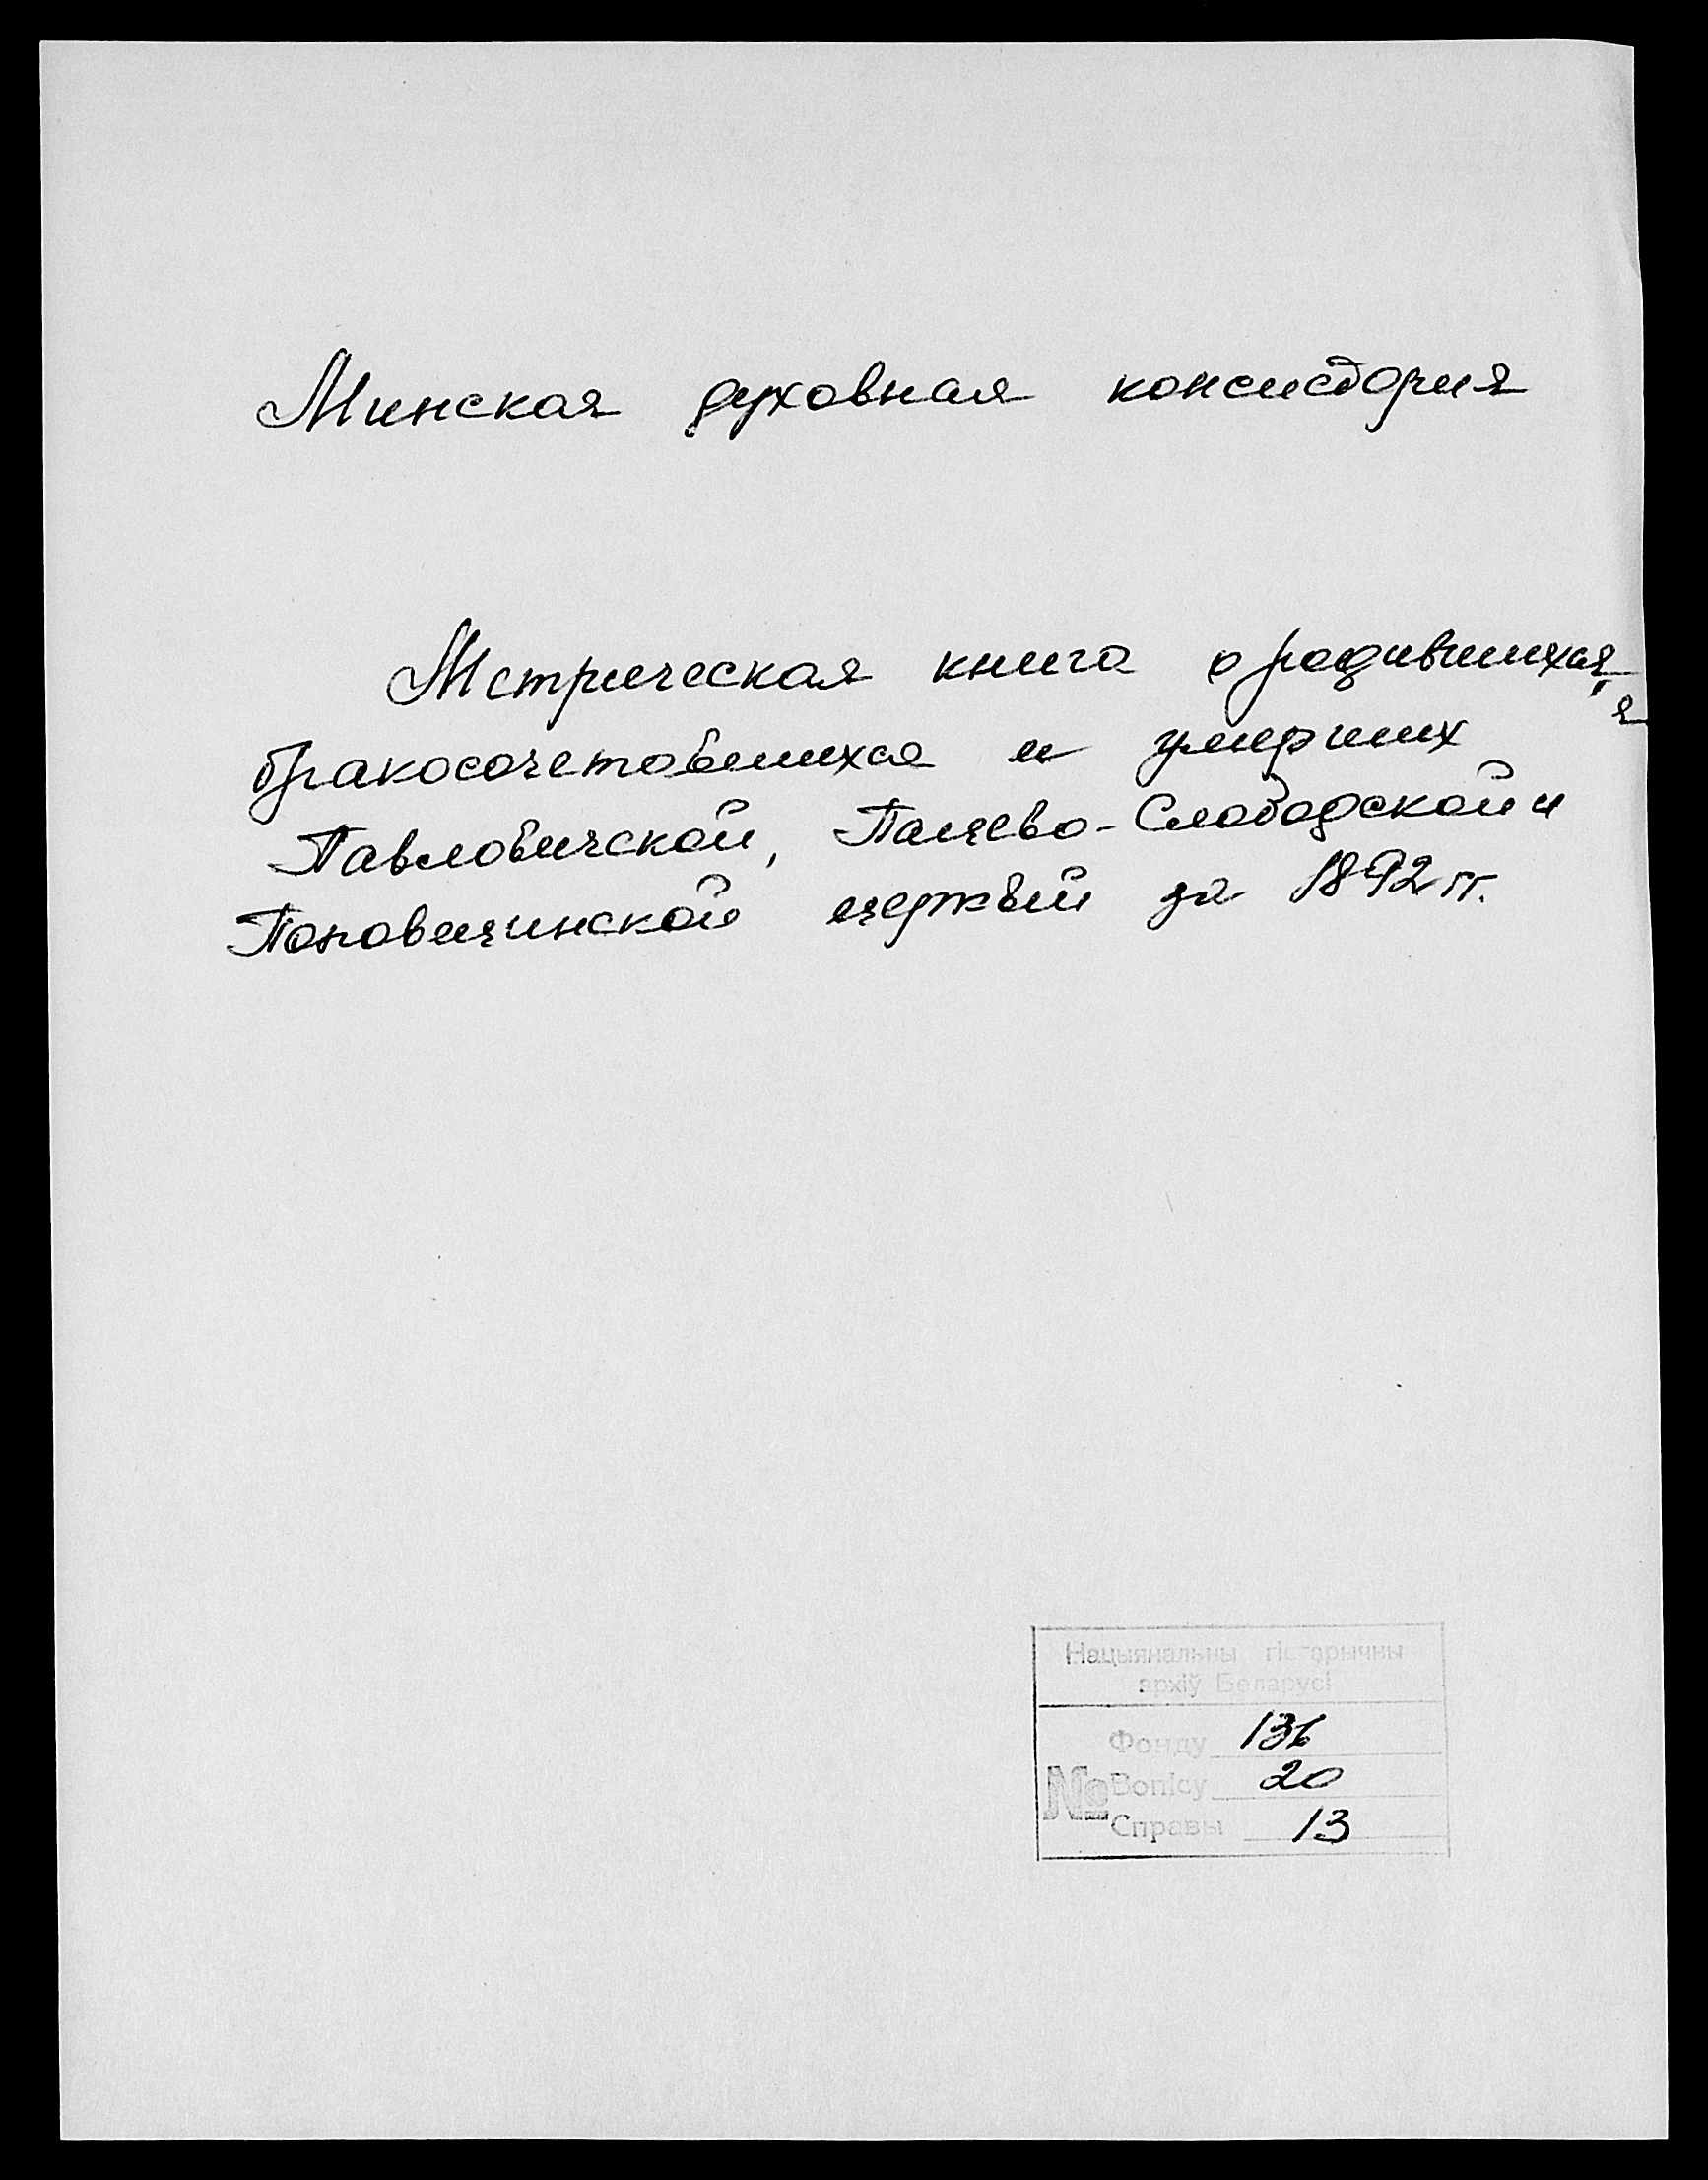 Минская духовная консистория
Метрическая книга о родившихся,
бракосочетавшихся и умерших
Павловичской, Пацево-Слободской и
Поповщинской церквей за 1892 гг.
Нацыянальны гістарычны
архіў Беларусі
Фонду 136
№ Вопісу 20
Справы 13